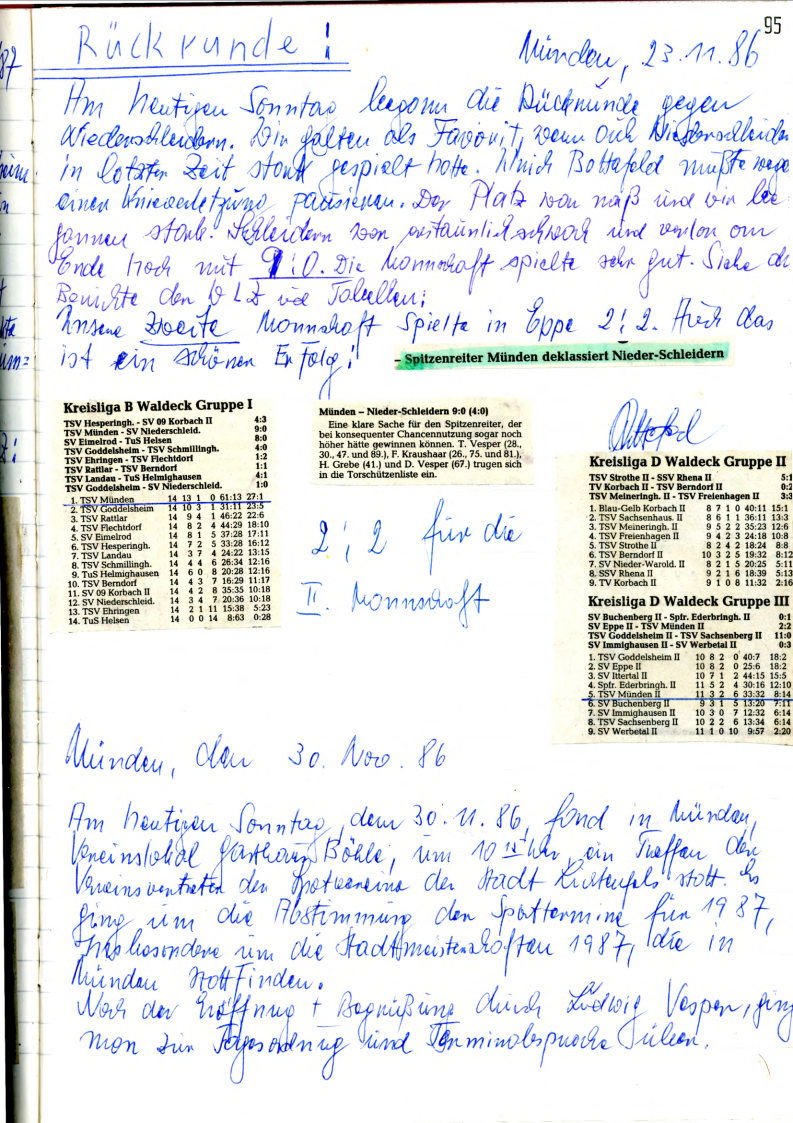 95
Rückrunde!
Münden, 23.11.86
Am heutigen Sonntag begann die Rückrunde gegen
Niederschleidern. Wir galten als Favorit, wenn auch Niederschleidern
in letzter Zeit stark gespielt hatte. Ulrich Bottefeld mußte wegen
einer Knieverletzung pausieren. Der Platz war naß und wir be
gannen stark. Schleidern war erstaunlich schwach und verlor am
Ende hoch mit 9:0. Die Mannschaft spielte sehr gut. Siehe
Berichte der WLZ und Tabellen:
Unsere zweite Mannschaft spielte in Eppe 2:2. Auch das
ist ein schöner Erfolg!
– Spitzenreiter Münden deklassiert Nieder-Schleidern
Kreisliga B Waldeck Gruppe I
TSV Hesperingh. - SV 09 Korbach II 4:3
TSV Münden - SV Niederschleid. 9:0
SV Eimelrod - TuS Helsen 8:0
TSV Goddelsheim - TSV Schmillingh. 4:0
TSV Ehringen - TSV Flechtdorf 1:2
TSV Rattlar - TSV Berndorf 1:1
TSV Landau - TuS Helmighausen 4:1
TSV Goddelsheim - SV Niederschleid. 1:0
1. TSV Münden 14 13 1 0 61:13 27:1
2. TSV Goddelsheim 14 10 3 1 31:11 23:5
3. TSV Rattlar 14 9 4 1 46:22 22:6
4. TSV Flechtdorf 14 8 2 4 44:29 18:10
5. SV Eimelrod 14 8 1 5 37:28 17:11
6. TSV Hesperingh. 14 7 2 5 33:28 16:12
7. TSV Landau 14 3 7 4 24:22 13:15
8. TSV Schmillingh. 14 4 4 6 26:34 12:16
9. TuS Helmighausen 14 6 0 8 20:28 12:16
10. TSV Berndorf 14 4 3 7 16:29 11:17
11. SV 09 Korbach II 14 4 2 8 35:35 10:18
12. SV Niederschleid. 14 3 4 7 20:36 10:18
13. TSV Ehringen 14 2 1 11 15:38 5:23
14. TuS Helsen 14 0 0 14 8:63 0:28
Münden – Nieder-Schleidern 9:0 (4:0)
Eine klare Sache für den Spitzenreiter, der
bei konsequenter Chancennutzung sogar noch
höher hätte gewinnen können. T. Vesper (28.,
30., 47. und 89.), F. Kraushaar (26., 75. und 81.),
H. Grebe (41.) und D. Vesper (67.) trugen sich
in die Torschützenliste ein.
2:2 für die
II. Mannschaft
Kreisliga D Waldeck Gruppe II
TSV Strothe II - SSV Rhena II 5:1
TV Korbach II - TSV Berndorf II 0:2
TSV Meineringh. II - TSV Freienhagen II 3:3
1. Blau-Gelb Korbach II 8 7 1 0 40:11 15:1
2. TSV Sachsenhaus. II 8 6 1 1 36:11 13:3
3. TSV Korneringh. II 9 5 2 2 35:23 12:6
4. TSV Freienhagen II 9 4 2 3 24:18 10:8
5. TSV Strothe II 8 2 4 2 18:24 8:8
6. TSV Berndorf II 10 3 2 5 19:32 8:12
7. SV Nieder-Warold. II 8 2 1 5 20:25 5:11
8. SSV Rhena II 9 2 1 6 18:39 5:13
9. TV Korbach II 9 1 0 8 11:32 2:16
Kreisliga D Waldeck Gruppe III
SV Buchenberg II - Spfr. Ederbringh. II 0:1
SV Eppe II - TSV Münden II 2:2
TSV Goddelsheim II - TSV Sachsenberg II 11:0
SV Immighausen II - SV Werbetal II 0:3
1. TSV Goddelsheim II 10 8 2 0 40:7 18:2
2. SV Eppe II 10 8 2 0 25:6 18:2
3. SV Ittertal II 10 7 1 2 44:15 15:5
4. Spfr. Ederbringh. II 11 5 2 4 30:16 12:10
5. TSV Münden II 11 3 2 6 33:32 8:14
6. SV Buchenberg II 9 3 1 5 13:20 7:11
7. SV Immighausen II 10 3 0 7 12:32 6:14
8. TSV Sachsenberg II 10 2 2 6 13:34 6:14
9. SV Werbetal II 11 1 0 10 9:57 2:20
Münden, den 30. Nov. 86
Am heutigen Sonntag, dem 30.11.86, fand in Münden,
Vereinslokal Gasthaus Böhle, um 10 Uhr, ein Treffen der
Vereinsvertreter der Sportvereine der Stadt Lichtenfels statt. Es
ging um die Abstimmung der Sporttermine für 1987,
insbesondere um die Stadtmeisterschaften 1987, die in
Münden stattfinden.
Nach der Eröffnung + Begrüßung durch Ludwig Vesper, ging
man zur Tagesordnung und Terminabsprache über.